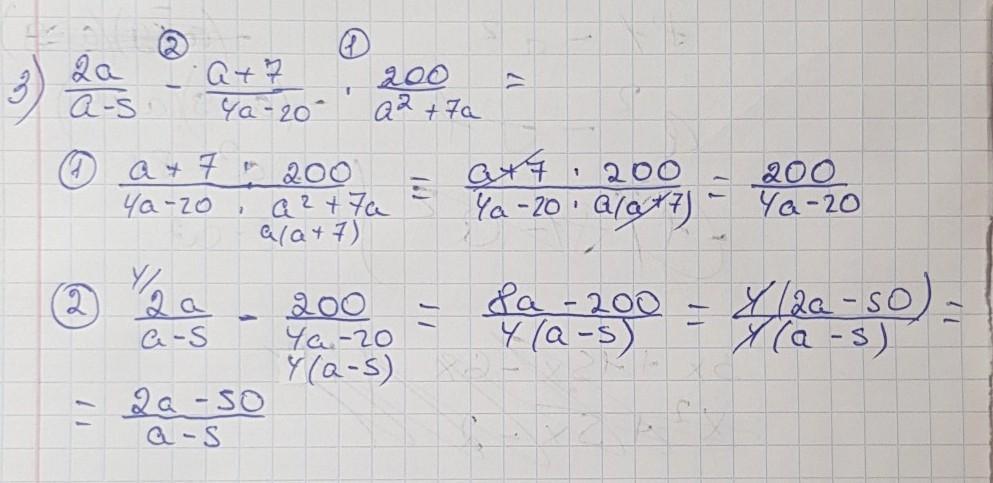 3) 2a/(a-5) ② - (a+7)/(4a-20) ① · 200/(a²+7a) =
① (a+7 · 200)/(4a-20 · a²+7a) = (a+7 · 200)/(4a-20 · a(a+7)) = 200/(4a-20)
a(a+7)
② 4/ 2a/(a-5) - 200/(4a-20) = (8a-200)/(4(a-5)) = 4(2a-50)/(4(a-5)) =
4(a-5)
= (2a-50)/(a-5)